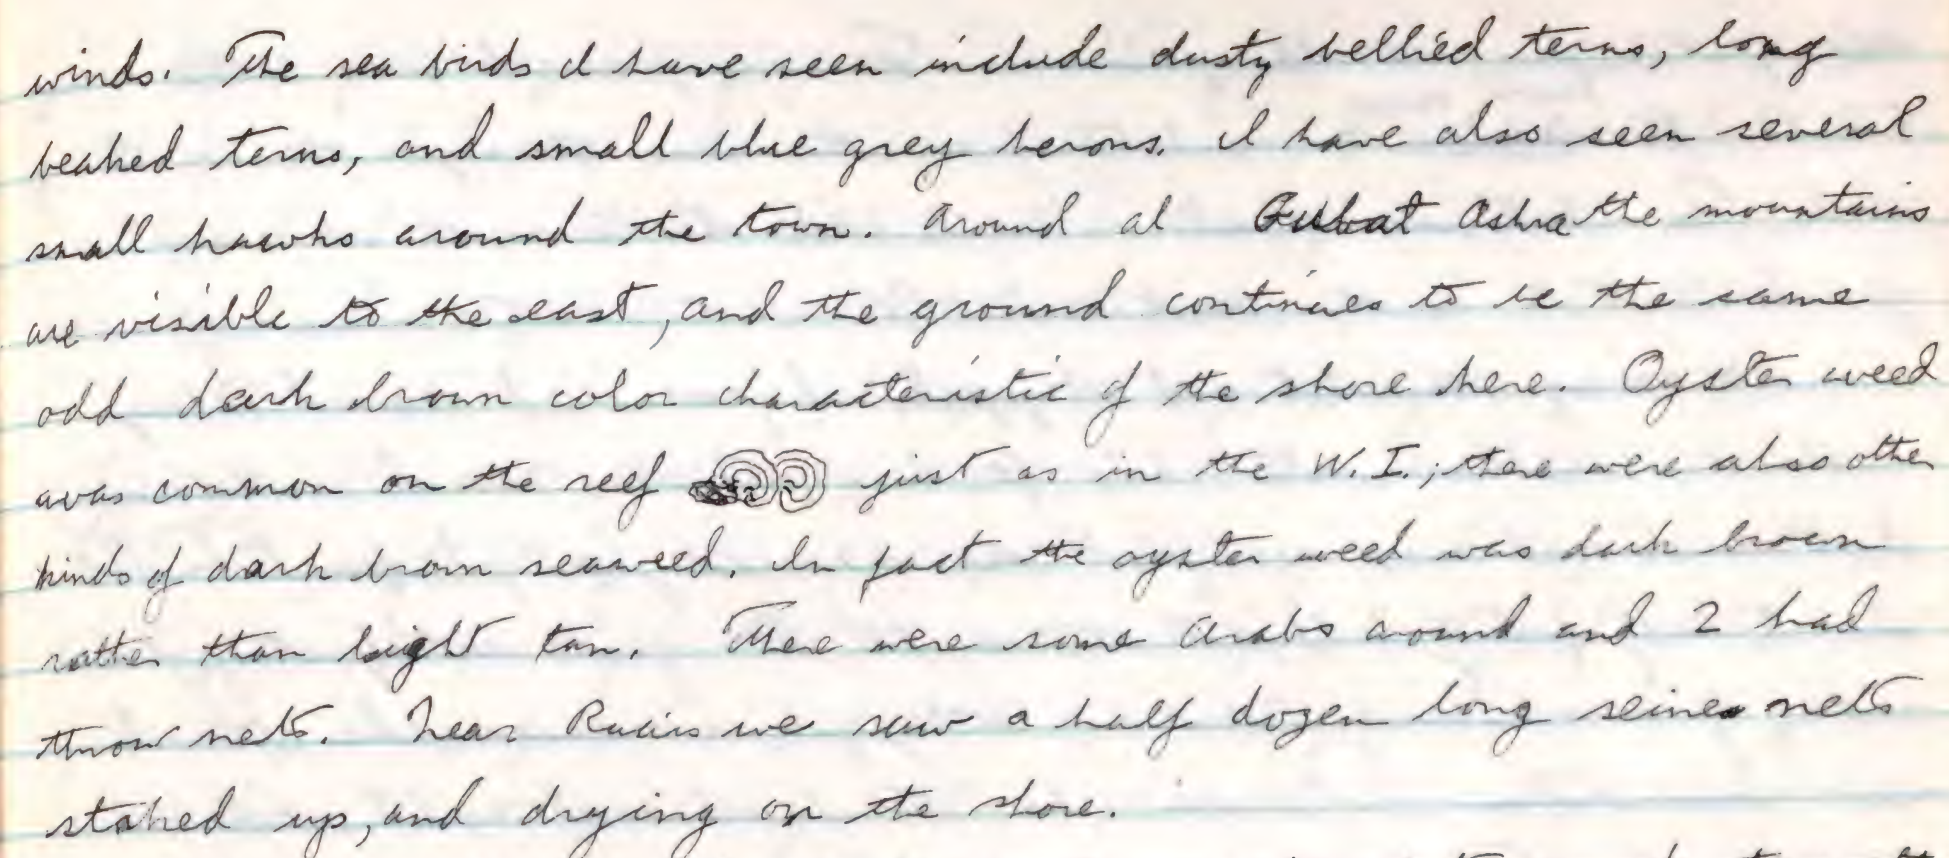 winds. The sea birds I have seen include dusty bellied terns, long
beaked terns, and small blue grey herons. I have also seen several
small hawks around the town. Around al Gubbat Ashra the mountains
are visible to the east, and the ground continues to be the same
odd dark brown color characteristic of the shore here. Oyster weed
was common on the reef just as in the W.I.; there were also other
kinds of dark brown seaweed. In fact the oyster weed was dark brown
rather than light tan. There were some Arabs around and 2 had
throw nets. Near Ruais we saw a half dozen long seine nets
staked up, and drying on the shore.